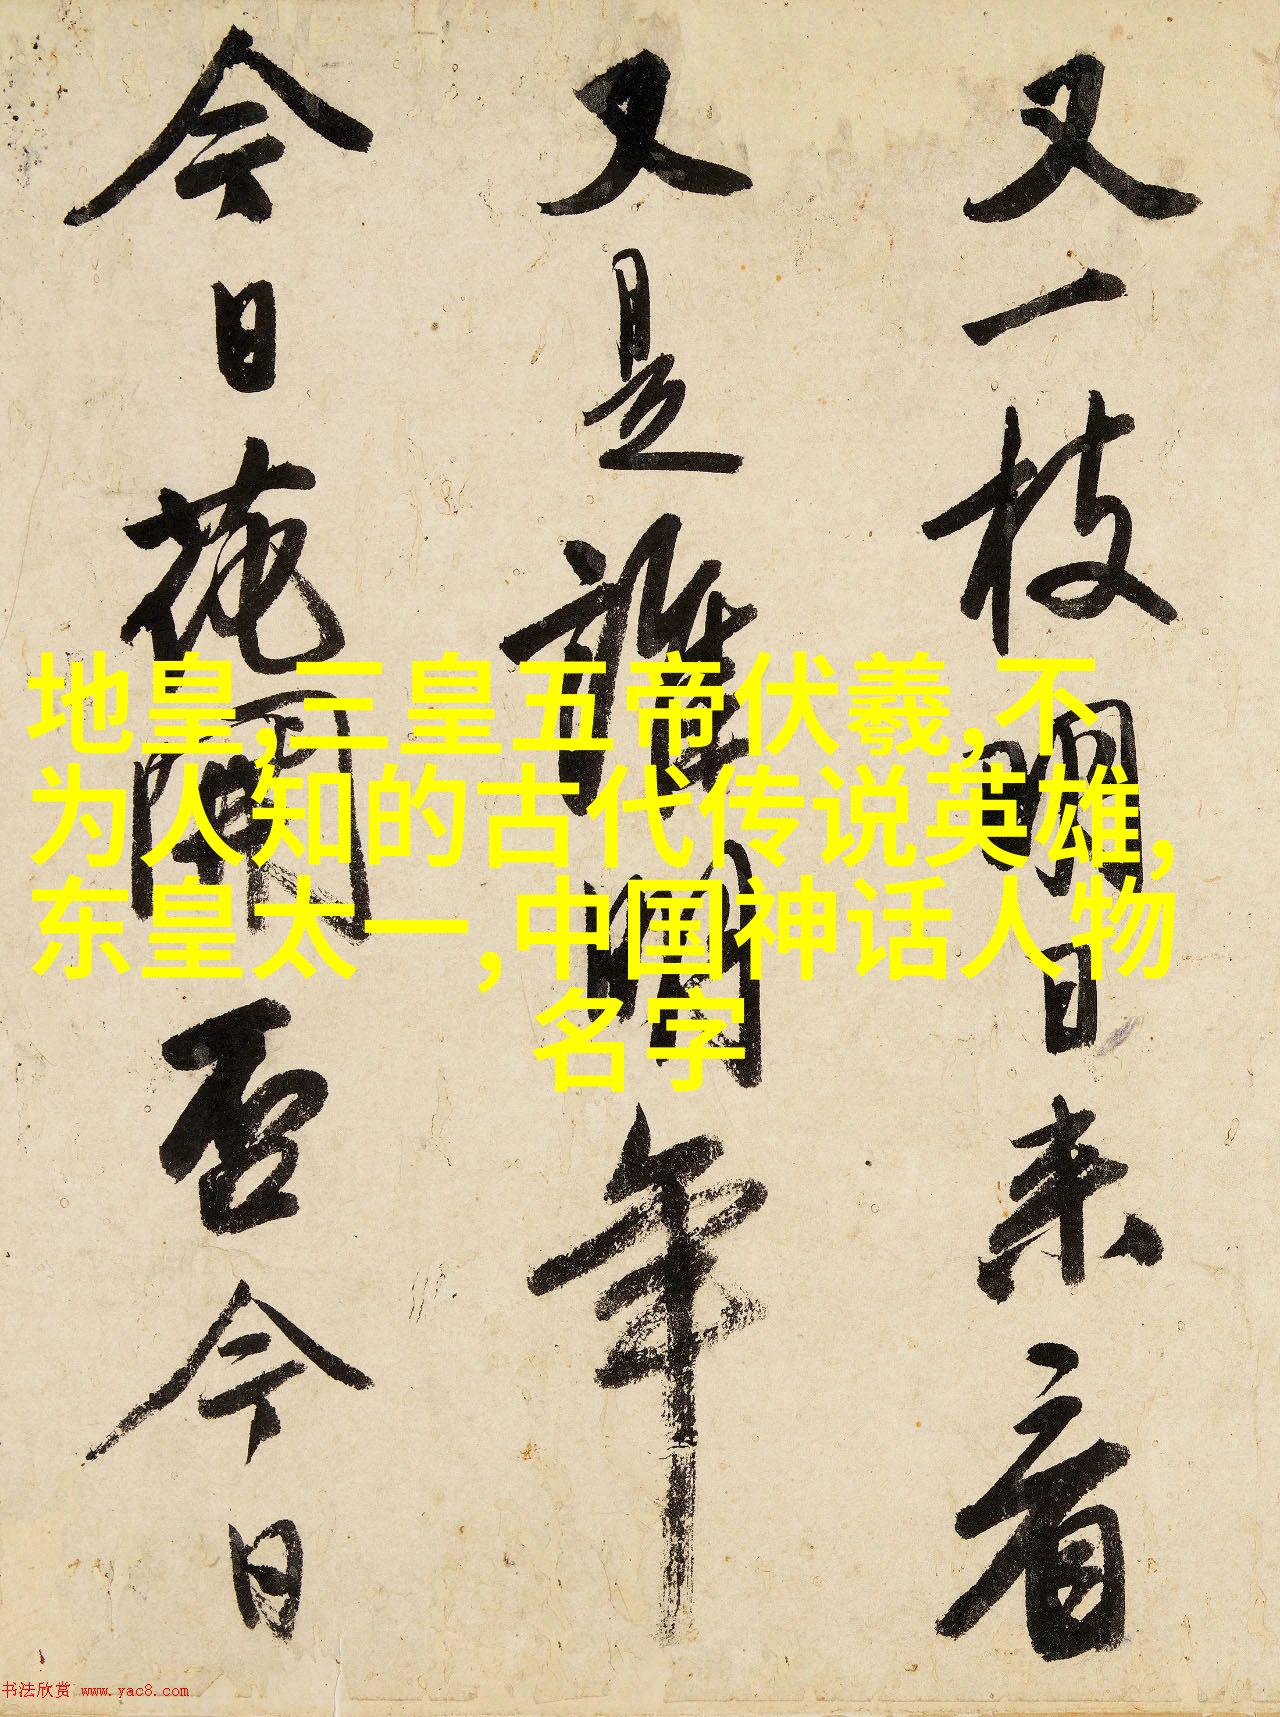 又一枝明日来看
又是誰明年
今日花開否今日
地皇,三皇五帝伏羲,不
为人知的古代传说英雄,
东皇太一,中国神话人物
名字
书法欣赏 www.yac8.com